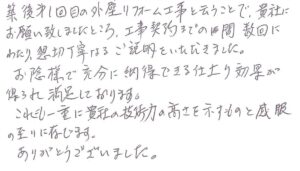 築後才1回目の外壁リフォーム工事と云うことで、貴社に
お願い致しましたところ、工事契約までの間数回に
わたり、懇切丁寧なるご説明をいただきました。
お陰様で充分に納得できる仕上り効果が
得られ満足しております。
これも一重に貴社の技術力の高さを示すものと感服
の至りに存じます。
ありがとうございました。